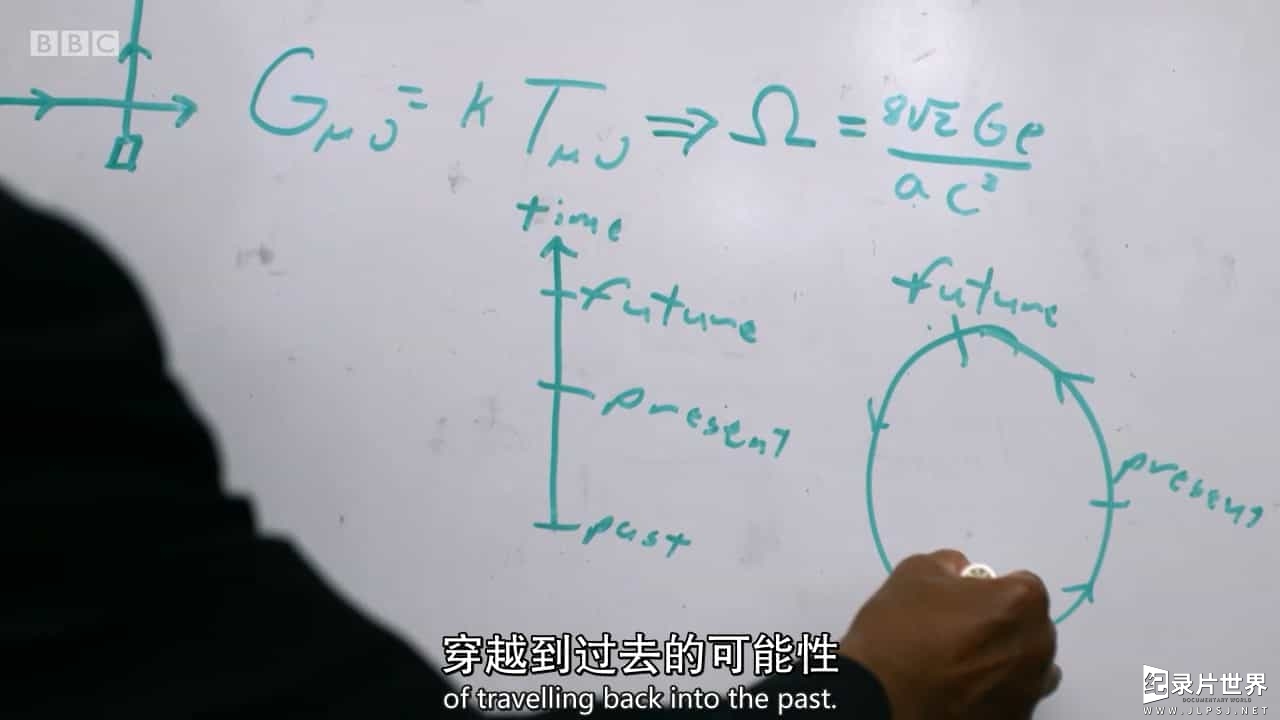 BBC
G_μν = k T_μν ⇒ Ω = 8√2 Gρ / a c²
time
future
present
past
future
present
穿越到过去的可能性
of travelling back into the past.
纪录片世界
DOCUMENTARY WORLD
WWW.JLPSJ.NET